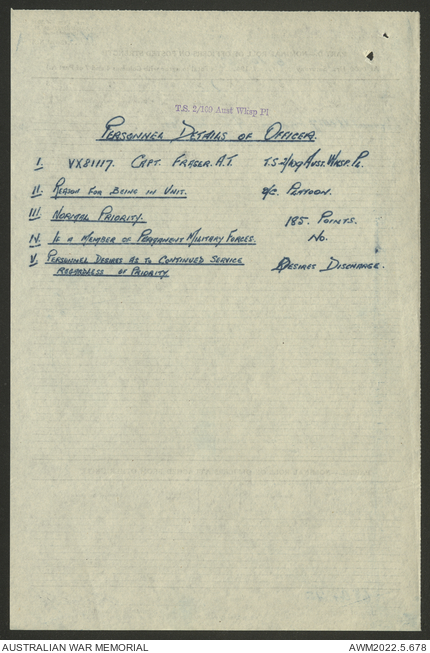 T.S. 2/109 Aust Wksp Pl
Personnel Details of Officer.
I. VX81117. Capt. Fraser. A.T. T.S-2/109 Aust. Wksp. Pl.
II. Reason for Being in Unit. O/C. Platoon.
III Normal Priority. 185. Points.
IV. Is a Member of Permanent Military Forces. No.
V. Personnel Desires as to Continued Service
regardless of Priority. Desires Discharge.
AUSTRALIAN WAR MEMORIAL AWM2022.5.678